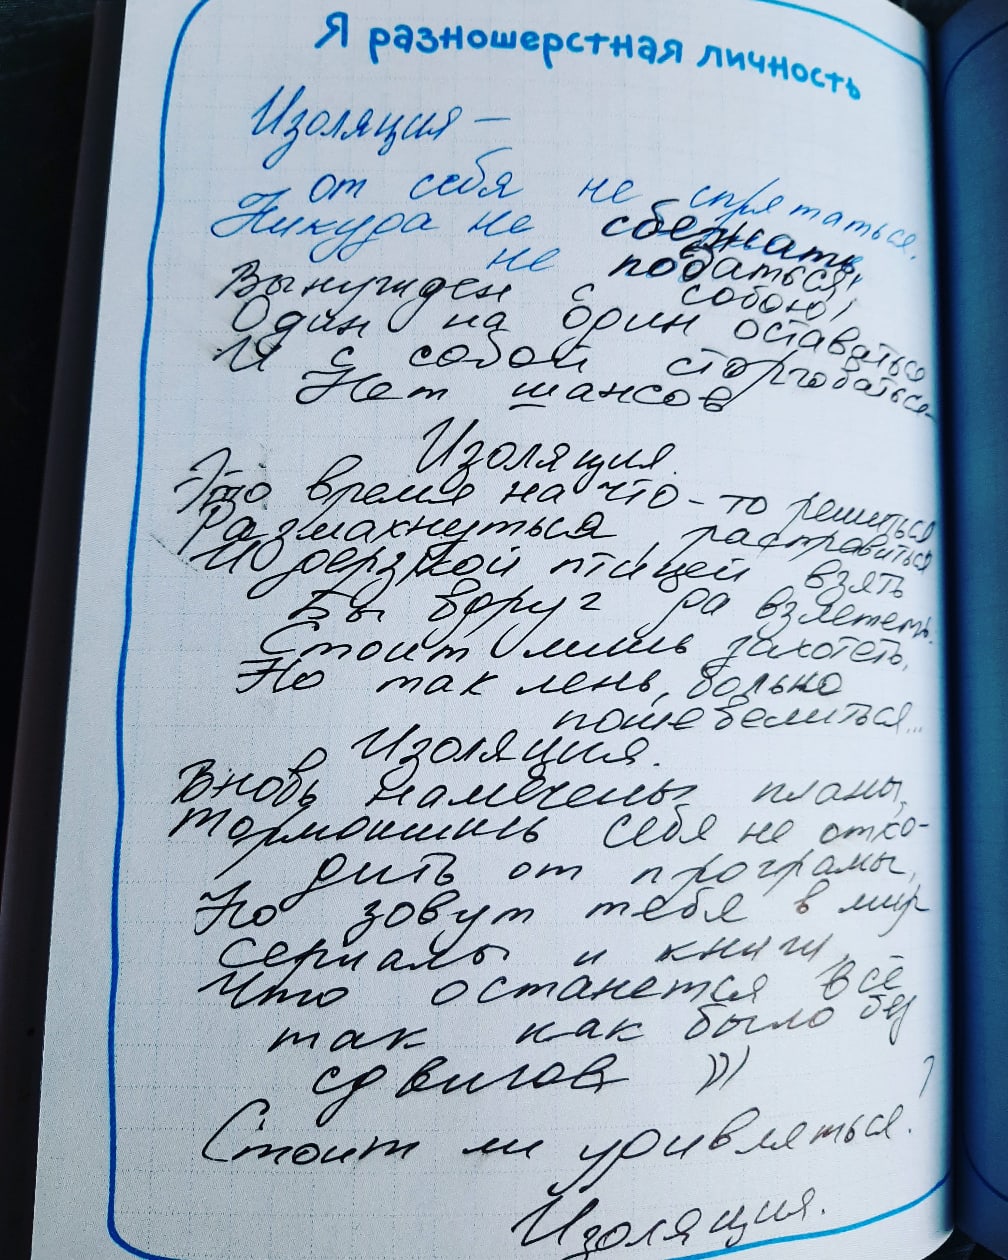 Я разношерстная личность
Изоляция –
от себя не спрятаться.
Никуда не сбежать,
не податься!
Вынужден с собою
Один на один оставаться
И с собой сторговаться
Нет шансов
Изоляция.
Это время на что-то решиться
Размахнуться расправиться
И дерзкой птицей взять
бы вдруг да взлететь.
Стоит лишь захотеть,
Но так лень, больно
пошевелиться...
Изоляция.
Вновь намечены планы,
Тормошишь себя не отхо-
дить от програмы,
Но зовут тебя в мир
сериалы и книги,
Что останется всё
так как было без
сдвигов )))
Стоит ли удивляться?
Изоляция.